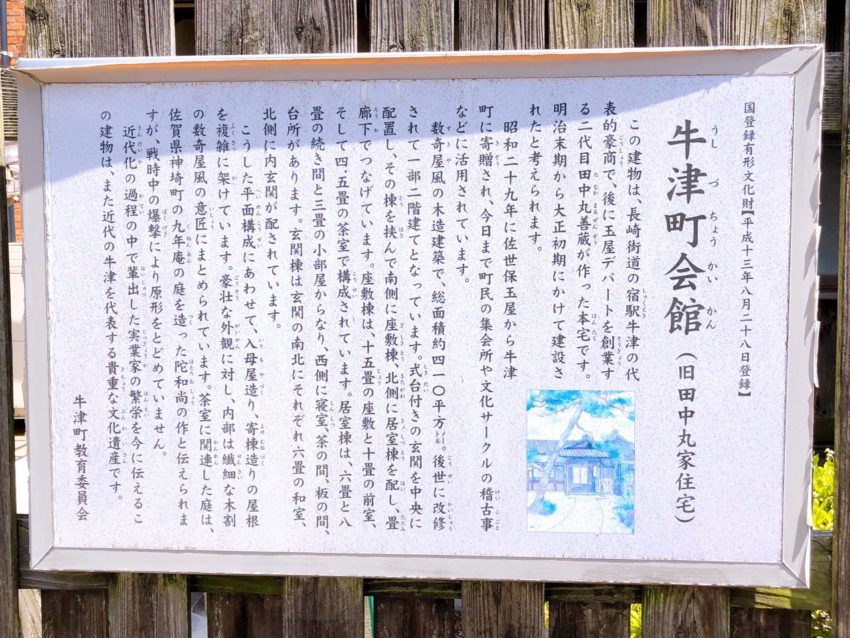 国登録有形文化財【平成十三年八月二十八日登録】
牛津町会館（旧田中丸家住宅）
うしづちょうかいかん
この建物は、長崎街道の宿駅牛津の代
表的豪商で、後に玉屋デパートを創業す
る二代目田中丸善蔵が作った本宅です。
明治末期から大正初期にかけて建設さ
れたと考えられます。
昭和二十九年に佐世保玉屋から牛津
町に寄贈され、今日まで町民の集会所や文化サークルの稽古事
などに活用されています。
数奇屋風の木造建築で、総面積約四一〇平方㍍。後世に改修
されて一部二階建てとなっています。式台付きの玄関を中央に
配置し、その棟を挟んで南側に座敷棟、北側に居室棟を配し、畳
廊下でつなげています。座敷棟は、十五畳の座敷と十畳の前室、
そして四.五畳の茶室で構成されています。居室棟は、六畳と八
畳の続き間と三畳の小部屋からなり、西側に寝室、茶の間、板の間、
台所があります。玄関棟は玄関の南北にそれぞれ六畳の和室、
北側に内玄関が配されています。
こうした平面構成にあわせて、入母屋造り、寄棟造りの屋根
を複雑に架けています。豪壮な外観に対し、内部は繊細な木割
の数奇屋風の意匠にまとめられています。茶室に関連した庭は、
佐賀県神埼町の九年庵の庭を造った陀和尚の作と伝えられま
すが、戦時中の爆撃により原形をとどめていません。
近代化の過程の中で輩出した実業家の繁栄を今に伝えるこ
の建物は、また近代の牛津を代表する貴重な文化遺産です。
牛津町教育委員会